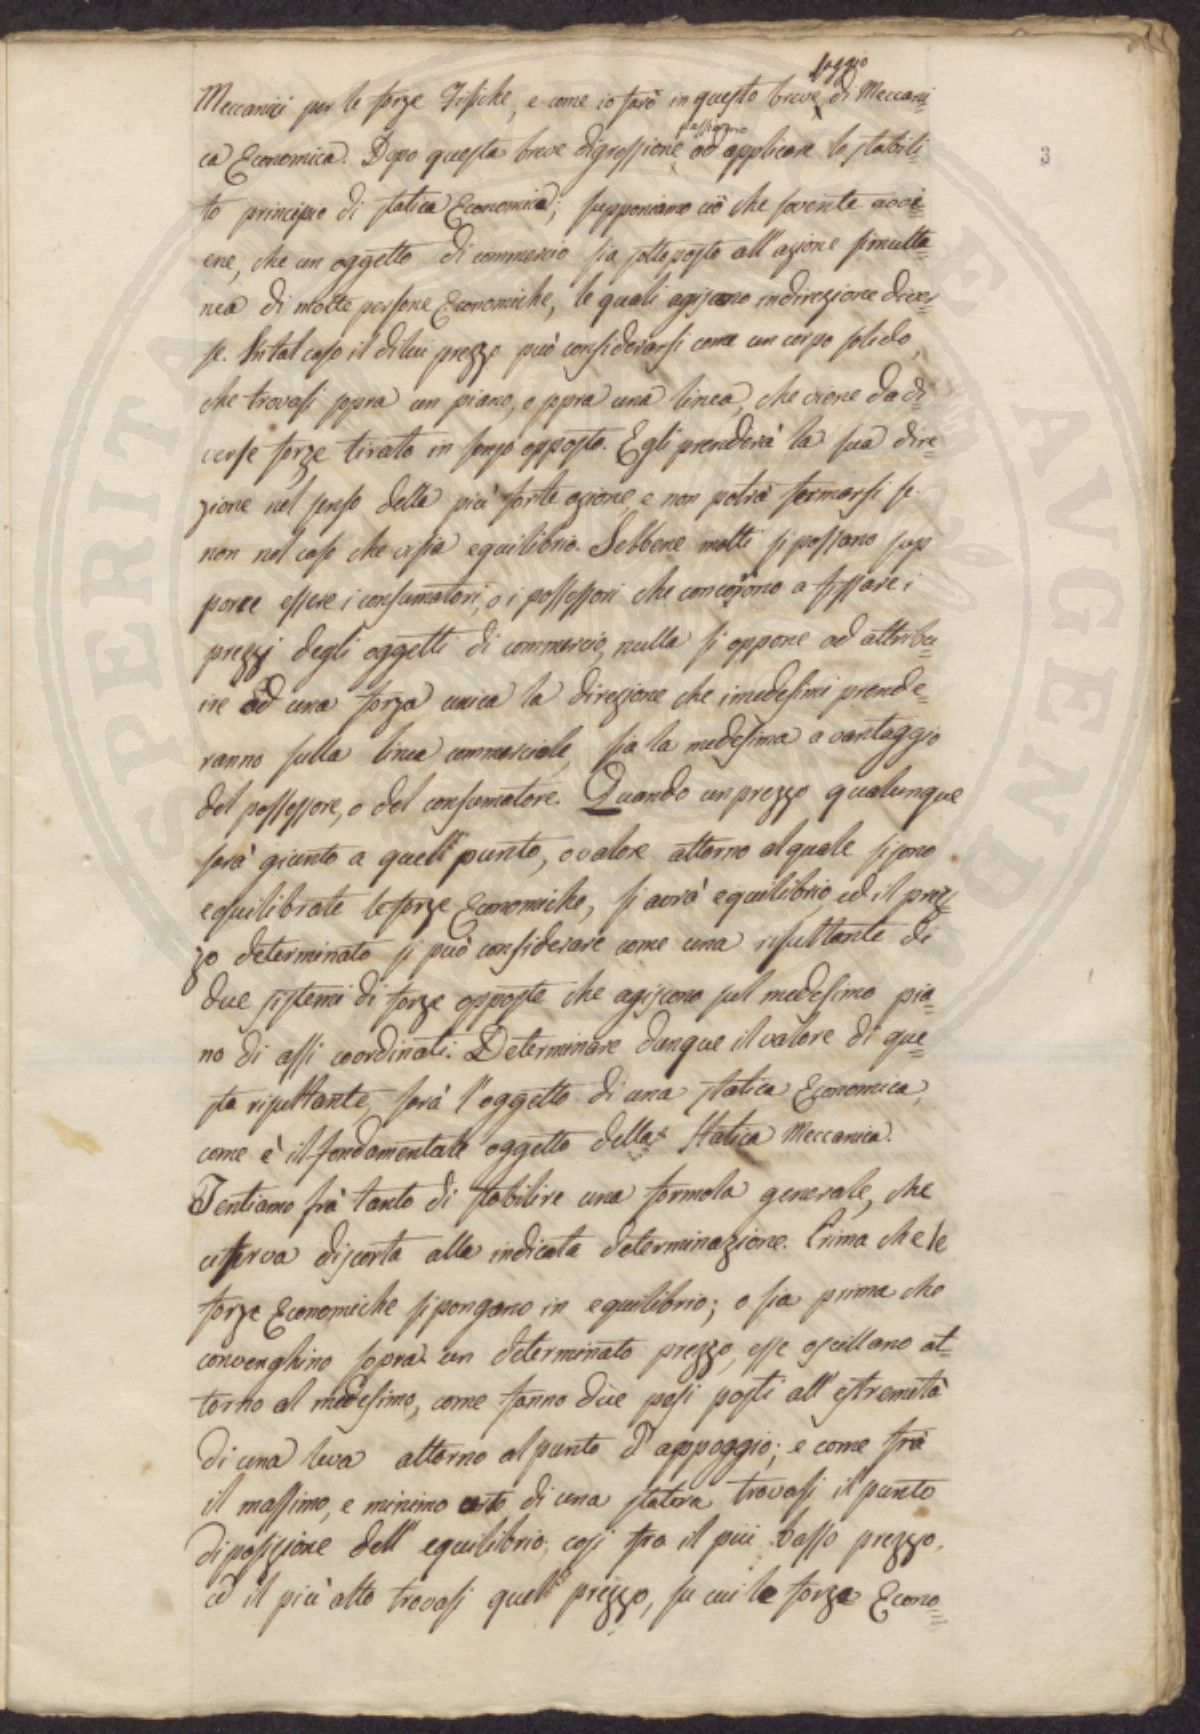 saggio
Meccanici per le forze Fisiche, e come io farò in questo breve di Meccani=
passiamo
ca Economica. Dopo questa breve digressione, ad applicare lo stabili=
3
to principio di statica Economica; supponiamo ciò che sovente avvi=
ene, che un oggetto di commercio sia sottoposto all'azione simulta
nea di molte persone Economiche, le quali agiscano in direzione diver=
se. In tal caso il di lui prezzo può considerarsi come un corpo solido,
che trovasi sopra un piano, o sopra una linea, che viene da di=
verse forze tirato in senso opposto. Egli prenderà la sua dire
zione nel senso della più forte azione, e non potrà fermarsi se
non nel caso che vi sia equilibrio. Sebbene molti si possano sup
porre essere i consumatori, o i possessori che concorrono a fissare i
prezzi degli oggetti di commercio, nulla si oppone ad attribu=
ire ad una forza unica la direzione che i medesimi prende=
ranno sulla linea commerciale, sia la medesima a vantaggio
del possessore, o del consumatore. Quando un prezzo qualunque
sarà giunto a quell punto, o valore attorno al quale si sono
equilibrate le forze Economiche, si avrà equilibrio, ed il prez=
zo determinato si può considerare come una risultante di
due sistemi di forze opposte che agiscono sul medesimo pia=
no di assi coordinati. Determinare dunque il valore di que=
sta risultante sarà l'oggetto di una statica Economica,
come è il fondamentale oggetto della Statica Meccanica.
Tentiamo frà tanto di stabilire una formola generale, che
ci serva di scorta alla indicata determinazione. Prima che le
forze Economiche si pongano in equilibrio; o sia prima che
convenghino sopra un determinato prezzo, esse oscillano at=
torno al medesimo, come fanno due pesi posti all'estremità
di una leva attorno al punto d'appoggio; e come frà
il massimo, e minimo di una statera trovasi il punto
di posizione dell'equilibrio, così fra il più basso prezzo,
ed il più alto trovasi quell prezzo, su cui le forze Econo=
SPERITATE AVGENDA